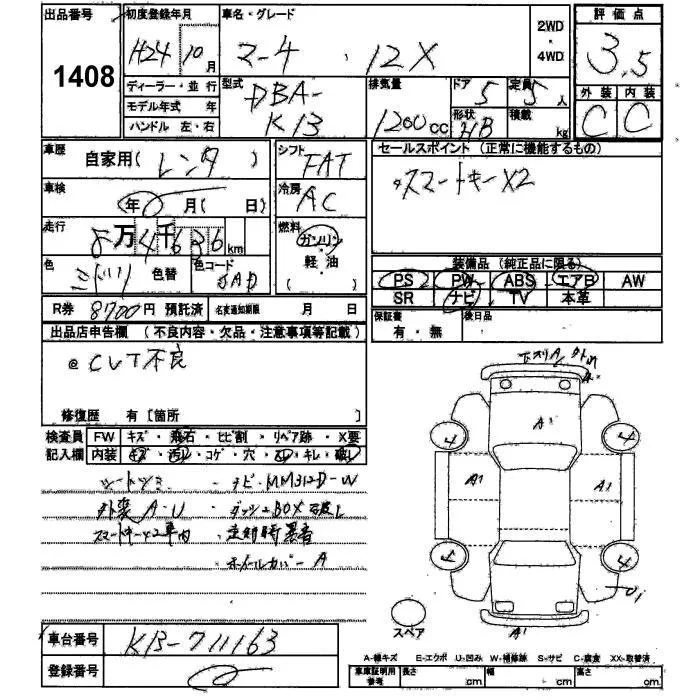 出品番号 1408
初度登録年月 H24 10月
車名・グレード マーチ 12X
2WD・4WD
評価点 3.5
外装 内装
C C
ディーラー・並行
モデル年式 年
ハンドル 左・右
型式 DBA-K13
排気量 1200cc
ドア 5
定員 5人
形状 HB
積載 kg
車歴 自家用(レンタ)
シフト FAT
セールスポイント(正常に機能するもの)
スマートキーX2
車検 年 月( 日)
冷房 AC
走行 8万4千636km
燃料 ガソリン
軽油
( )
色
色替
色コード JAD
装備品(純正品に限る)
PS PW ABS エアB AW
SR ナビ TV 本革
R券 8700円 預託済
名変通知期限 月 日
保証書 有・無
後日品
出品店申告欄(不良内容・欠品・注意事項等記載)
@CVT不良
修復歴 有[箇所 ]
検査員記入欄
FW キズ・飛石・ヒビ割・リペア跡・X要
内装 キズ・汚れ・コゲ・穴・凹・キレ・破レ
シートシミ ・ナビ・MM312D-W
外装 A・U ・ダッシュBOX破レ
スマートキーx2車内 ・走行時異音
・ホイールカバーA
下スリA
A1
4 4
A1 A1
4 4
A1
スペア
車台番号 K13-711163
登録番号
A-線キズ E-エクボ U-凹み W-補修跡 S-サビ C-腐食 XX-取替済
車庫証明用参考 長さ cm 幅 cm 高さ cm